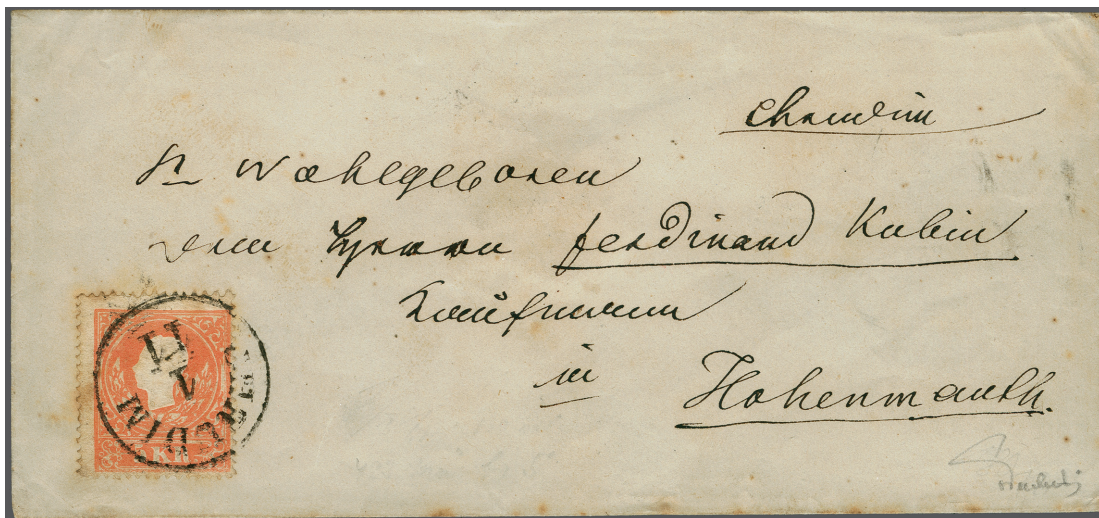 Chrudim
Sr Wohlgeboren
dem Herrn Ferdinand Kubin
Kaufmann
in
Hohenmauth.
CHRUDIM
KR